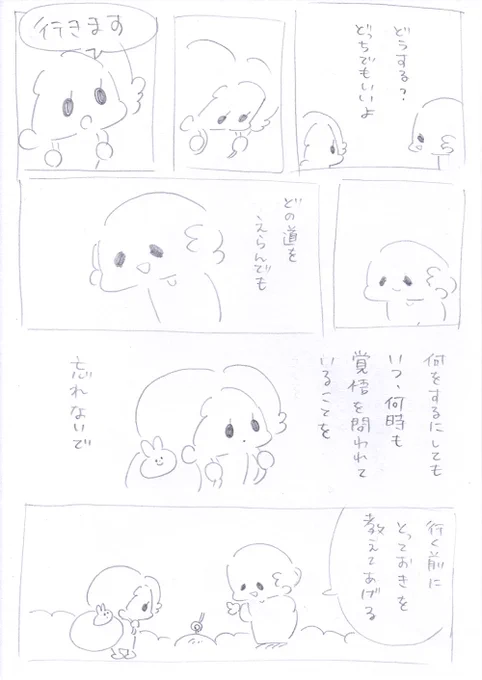 どうする?
どっちでもいいよ
行きます
どの道を
えらんでも
何をするにしても
いつ、何時も
覚悟を問われて
いることを
忘れないで
行く前に
とっておきを
教えてあげる